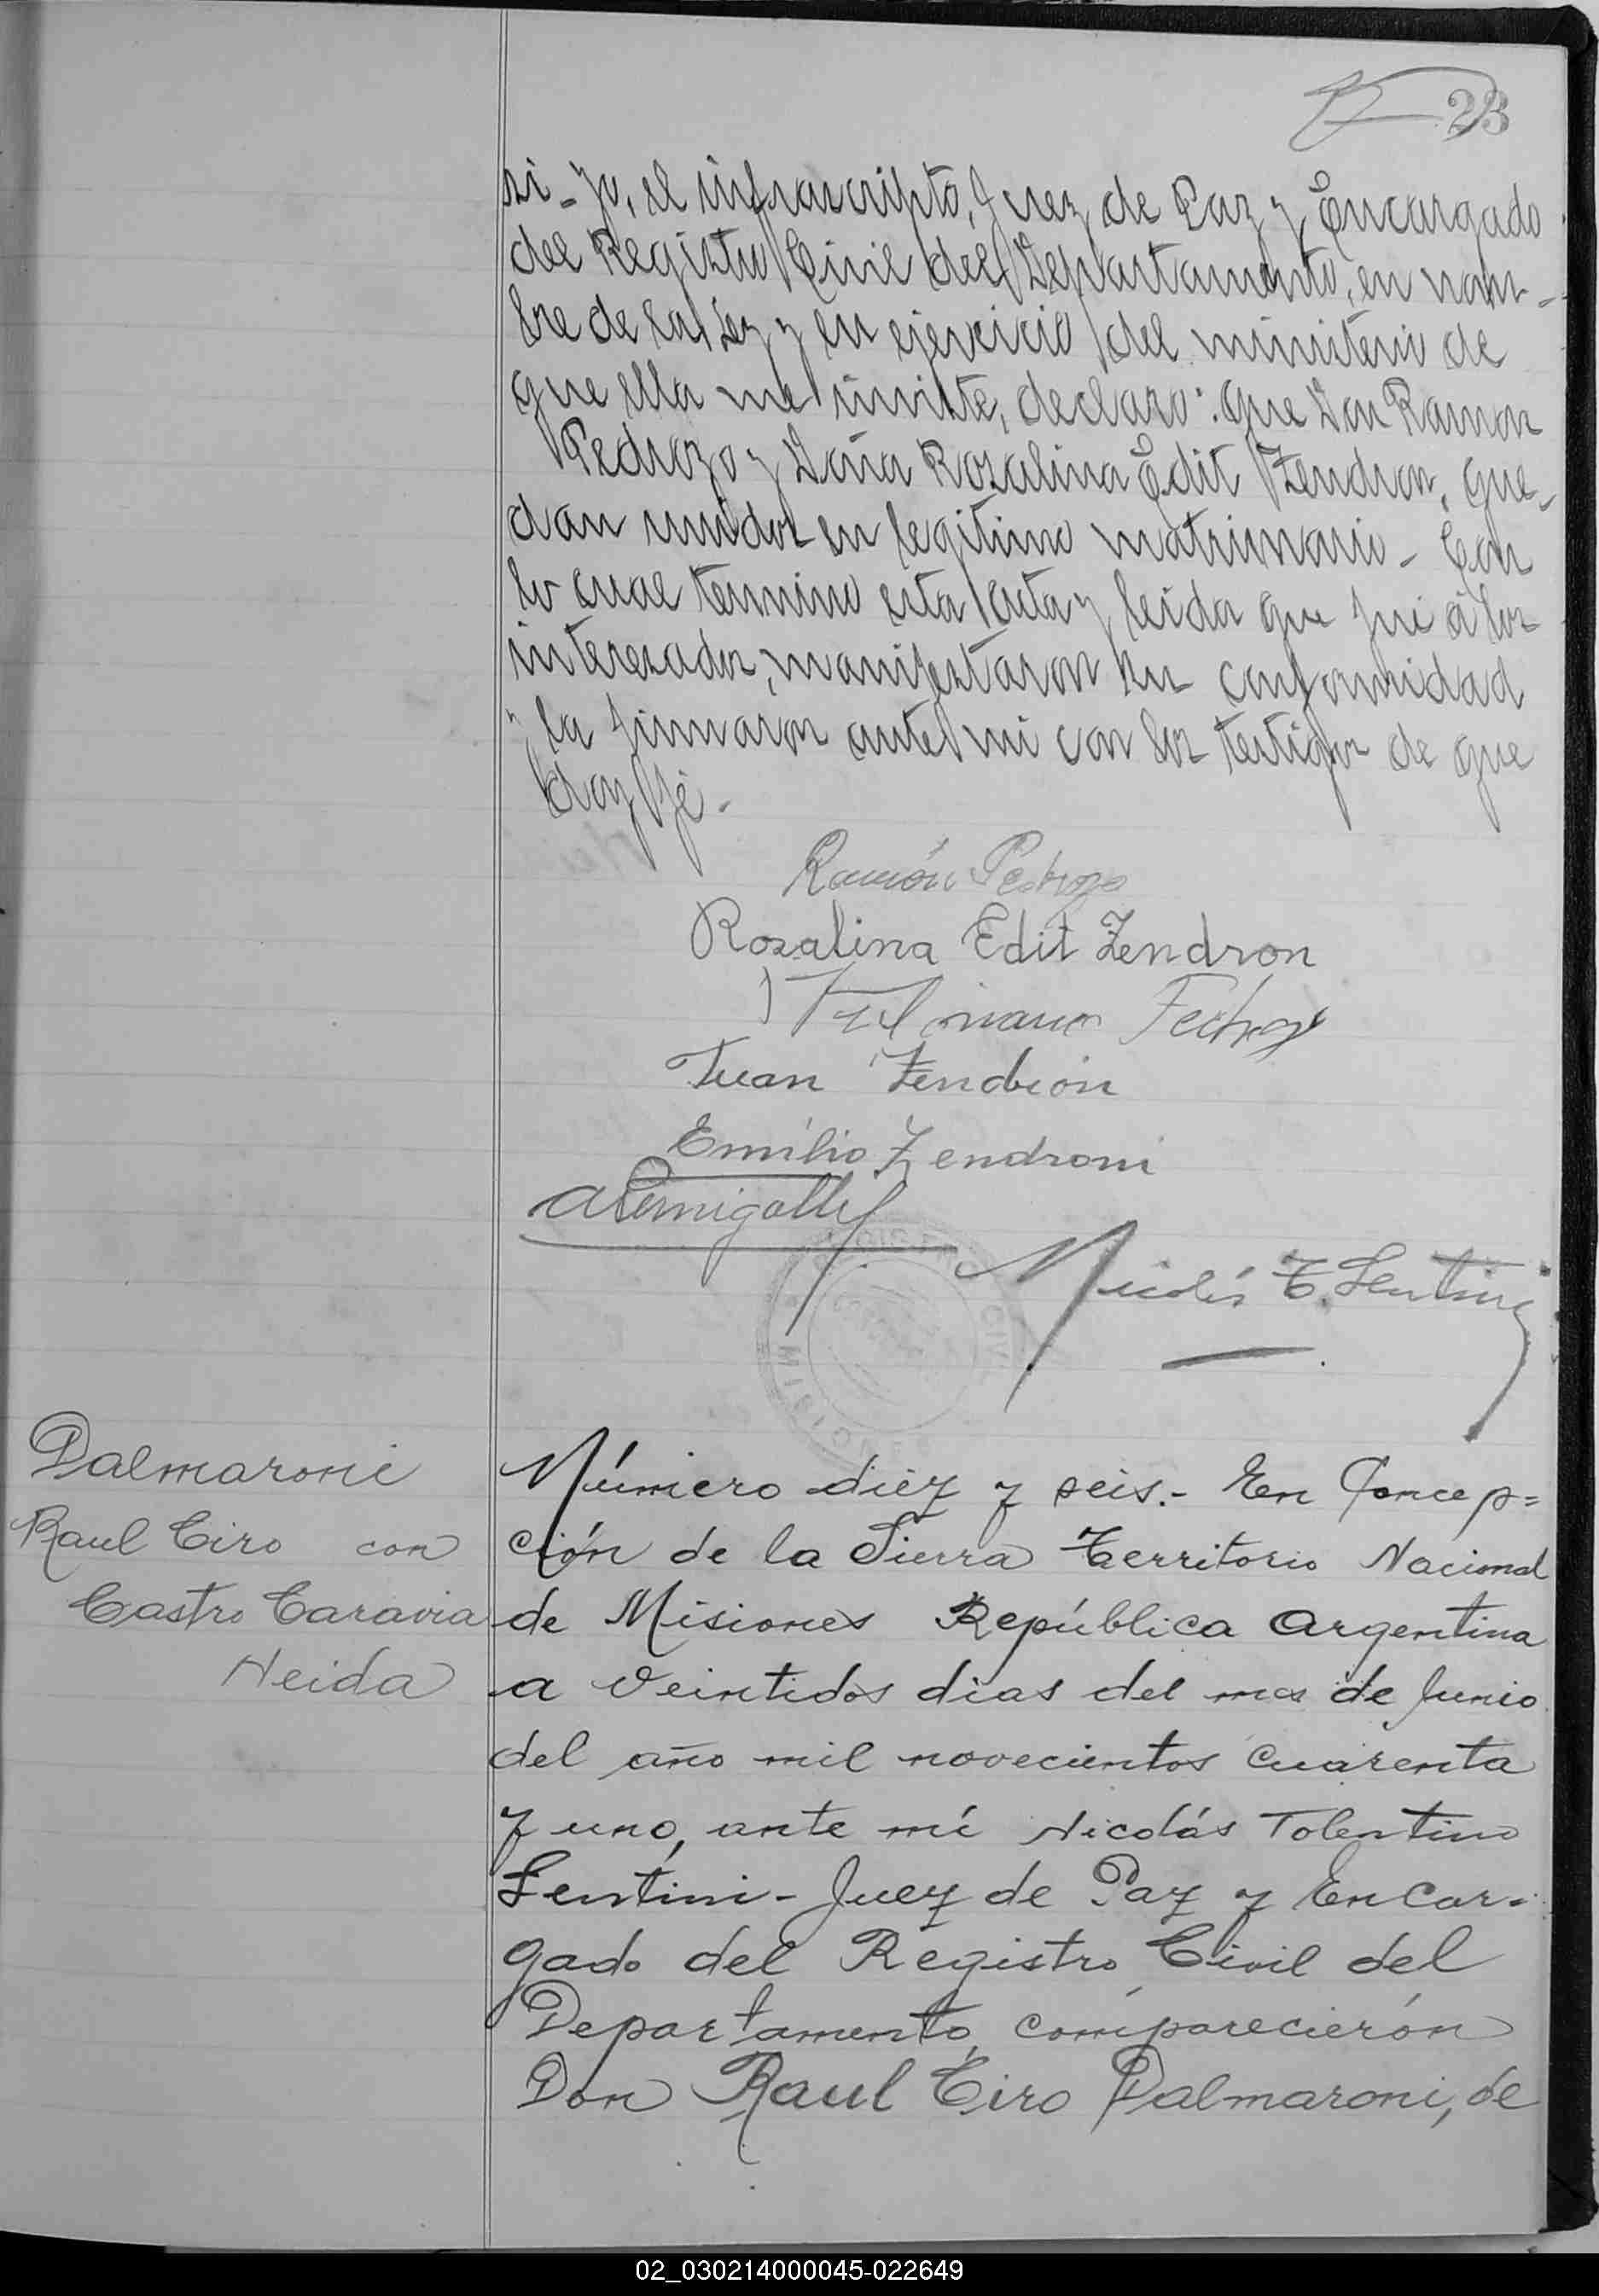 23
si - yo, el infrascripto, Juez de Paz y Encargado
del Registro Civil del Departamento, en nom-
bre de la Ley y en ejercicio del ministerio de
que ella me inviste, declaro: que Don Ramon
Pedrozo y Doña Rozalina Edit Zendron, que-
dan unidos en legitimo matrimonio - Con
lo cual termino esta acta y leida que fué á los
interesados, manifestaron su conformidad
y la firmaron ante mi con los testigos de que
doy fé.-
Ramón Pedrozo
Rozalina Edit Zendron
Juan Zendron
Emilio Zendroni
Nicolás T. Lentini
CIV
MISIONES
Dalmaroni
Raul Ciro con
Castro Caravia
Neida
Número diez y seis.- En Concep=
ción de la Sierra Territorio Nacional
de Misiones República Argentina
a veintidos dias del mes de Junio
del año mil novecientos cuarenta
y uno, ante mí Nicolás Tolentino
Lentini - Juez de Paz y Encar-
gado del Registro Civil del
Departamento, comparecierón
Don Raul Ciro Dalmaroni, de
02_030214000045-022649